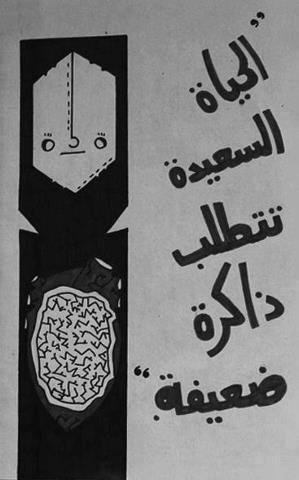 "الحياة
السعيدة
تتطلب
ذاكرة
ضعيفة."